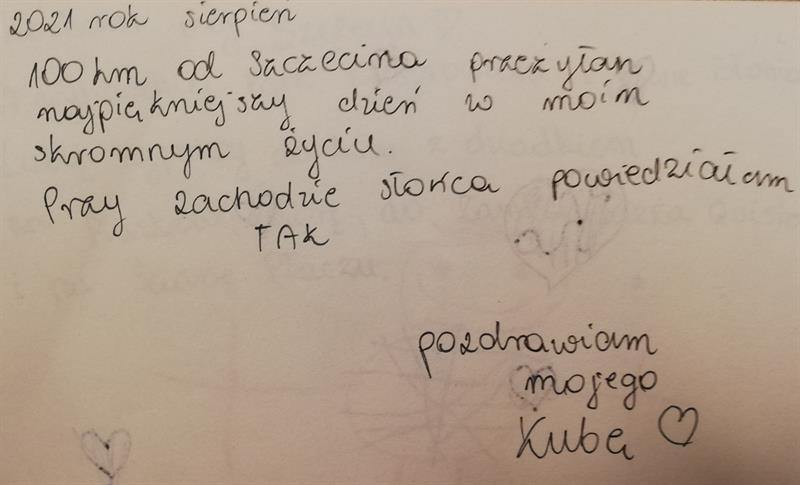 2021 rok sierpień
100 km od Szczecina przeżyłam
najpiękniejszy dzień w moim
skromnym życiu.
Przy zachodzie słońca powiedziałam
TAK
pozdrawiam
mojego
Kubę ♡